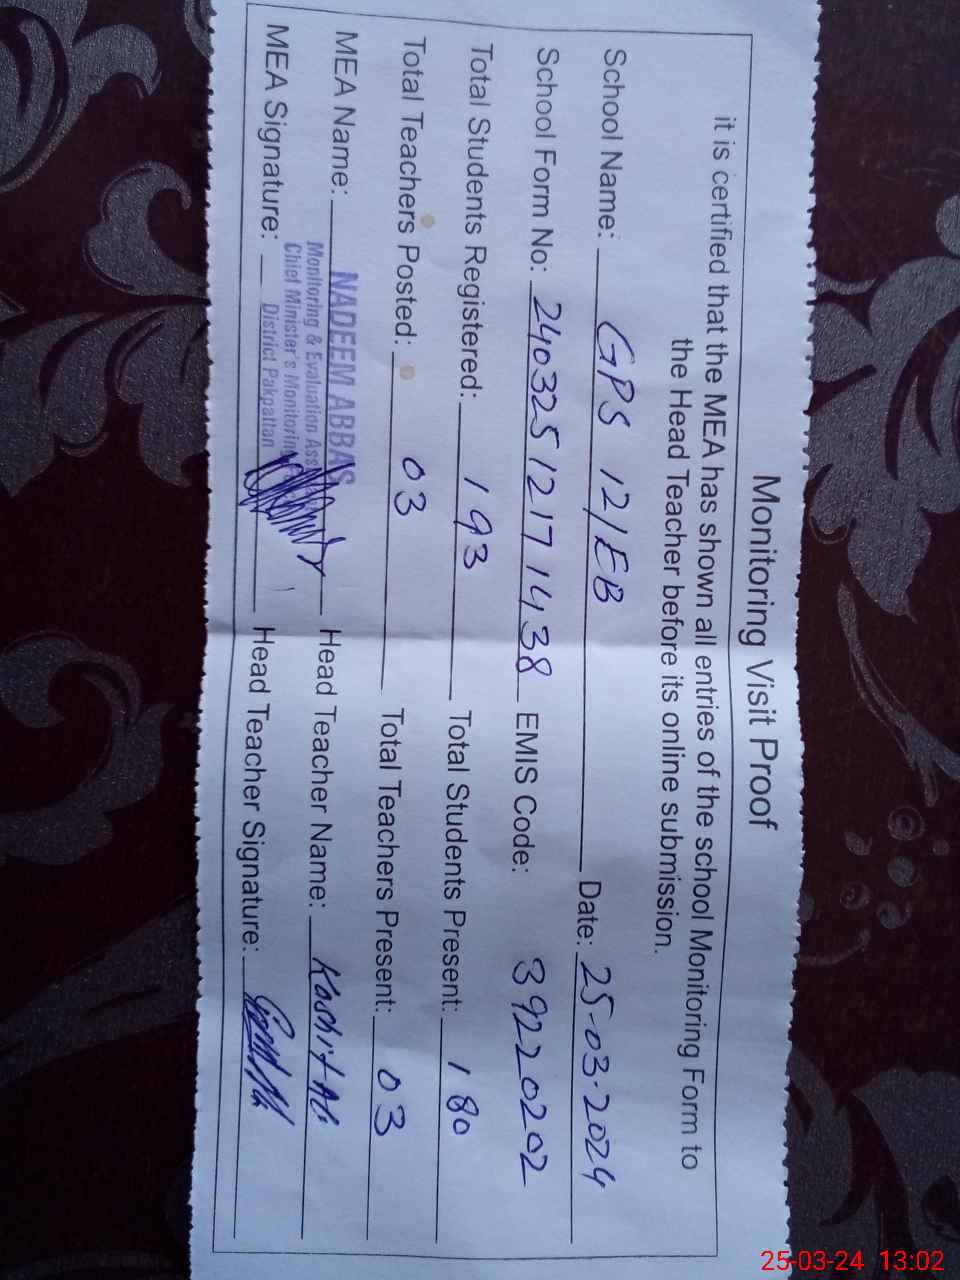 Monitoring Visit Proof
it is certified that the MEA has shown all entries of the school Monitoring Form to
the Head Teacher before its online submission.
School Name: GPS 12/EB Date: 25-03-2024
School Form No: 24032512171438 EMIS Code: 39220202
Total Students Registered: 193 Total Students Present: 180
Total Teachers Posted: 03 Total Teachers Present: 03
MEA Name: NADEEM ABBAS Head Teacher Name: Kashif Ali
Monitoring & Evaluation
Chief Minister's Monitoring
MEA Signature: District Pakpattan Head Teacher Signature:
25-03-24 13:02